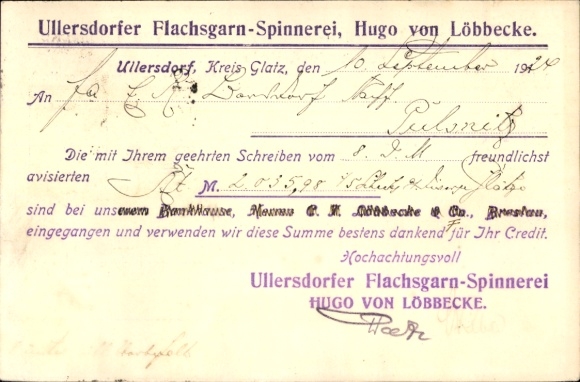 Ullersdorfer Flachsgarn-Spinnerei, Hugo von Löbbecke.
Ullersdorf, Kreis Glatz, den 10. September 1924
An Fa. C.
Pulsnitz
Die mit Ihrem geehrten Schreiben vom 8. D. M freundlichst
avisierten M. 2 035,98
sind bei unserem Bankhause, Herren C. T. Löbbecke & Co., Breslau,
eingegangen und verwenden wir diese Summe bestens dankend für Ihr Credit.
Hochachtungsvoll
Ullersdorfer Flachsgarn-Spinnerei
HUGO VON LÖBBECKE.